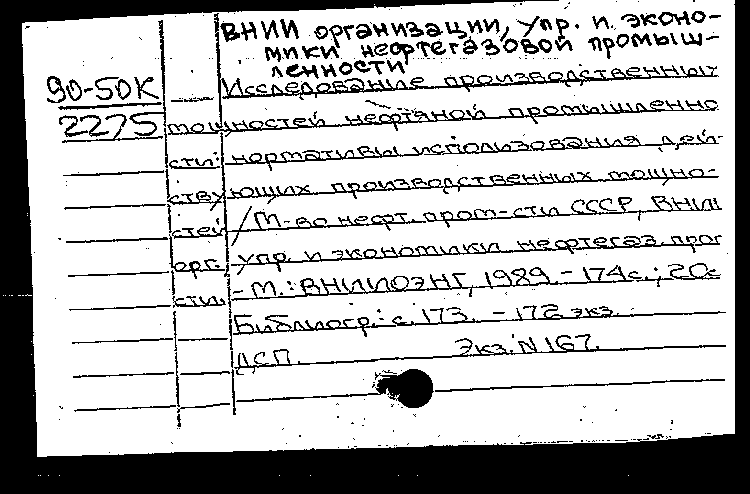 ВНИИ организации, упр. и эконо-
мики нефтегазовой промыш-
ленности
90-50К
2275
Исследование производственных
мощностей нефтяной промышленно
сти: нормативы использования дей-
ствующих производственных мощно-
стей / М-во нефт. пром-сти СССР, ВНИИ
орг., упр. и экономики нефтегаз. пром
сти. - М.: ВНИИОЭНГ, 1989. - 174с.; 20с
Библиогр.: с. 173. - 172 экз.
ДСП. Экз. N 167.